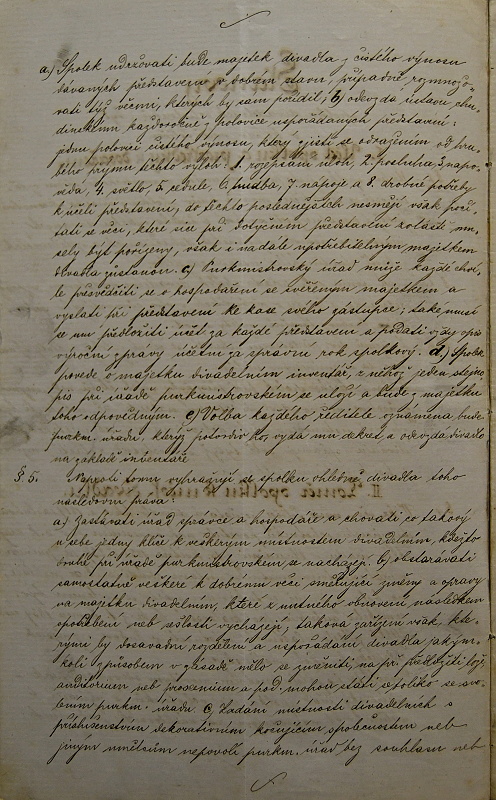 a.) Spolek udržovati bude majetek divadla z čistého výnosu
dávaných představení v dobrém stavu, případně rozmnožo-
vati týž věcmi, kterých by sám pořídil; b) odevzdá ústavu chu-
dinskému každoročně z polovice uspořádaných představení:
jednu polovici čistého výnosu, který zjistí se odražením od hru-
bého příjmu těchto výloh: 1. rozepsání úloh, 2. posluha 3. nápo-
věda, 4. světlo, 5. cedule, 6. hudba, 7. nápoje a 8. drobné potřeby
k účeli představení, do těchto poslednějších nesmějí však počí-
tati se věci, které sice při dotyčném představení zvláště mu-
sely být pořízeny, však i na dále upotřebitelným majetkem
divadla zůstanou. c) Purkmistrovský úřad může každé chví-
le přesvědčiti se o hospodaření se svěřeným majetkem a
vyslati při představení ke kase svého zástupce; také musí
se mu předložiti účet za každé představení a podati vždy opis
výroční zprávy účetní za správní rok spolkový. d.) Spolek
povede o majetku divadelním inventář, z něhož jeden stejno-
pis při úřadě purkmistrovském se uloží a bude z majetku
toho odpovědným. e) Volba každého ředitele oznámena bude
purkm. úřadu, který potvrdiv ho, vydá mu dekret, a odevzdá divadlo
na základě inventáře
§ 5. Naproti tomu vyhražují se spolku ohledně divadla toho
následovní práva:
a) Zastávati úřad správce a hospodáře a chovati co takový
u sebe jedny klíče k veškerým místnostem divadelním, kdežto
druhé při úřadě purkmistrovském se nacházejí. b) obstarávati
samostatně veškeré k dobrému věci směřující změny a opravy
na majetku divadelním, které z nutného obnovení následkem
opotřebení neb sešlosti vycházejí, taková zařízení však, kte-
rými by dosavadní rozdělení a uspořádání divadla jakým-
koli způsobem v zásadě mělo se změniti, na př. předložiti lóží,
auditorium neb proscenium a pod. mohou státi se toliko se svo-
lením purkm. úřadu c. Žádání místnosti divadelních s
příslušenstvím dekorativním kočujícím společnostem neb
jiným umělcům nepovolí purkm. úřad bez souhlasu neb